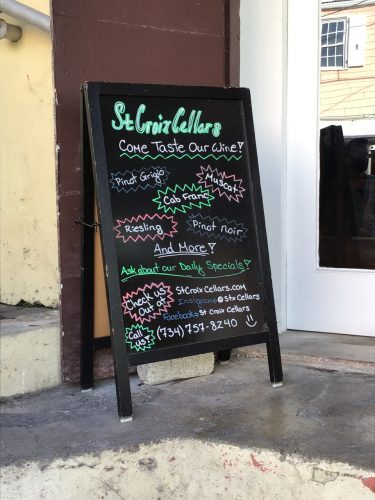 St Croix Cellars
Come Taste Our Wine!
Pinot Grigio
Muscat
Cab Franc
Riesling
Pinot Noir
And More!
Ask about our Daily Specials!
Check us
Out at:
StCroixCellars.com
Instagram@ Stx Cellars
Facebook@ St Croix Cellars
Call
Us!
(734) 757-8240